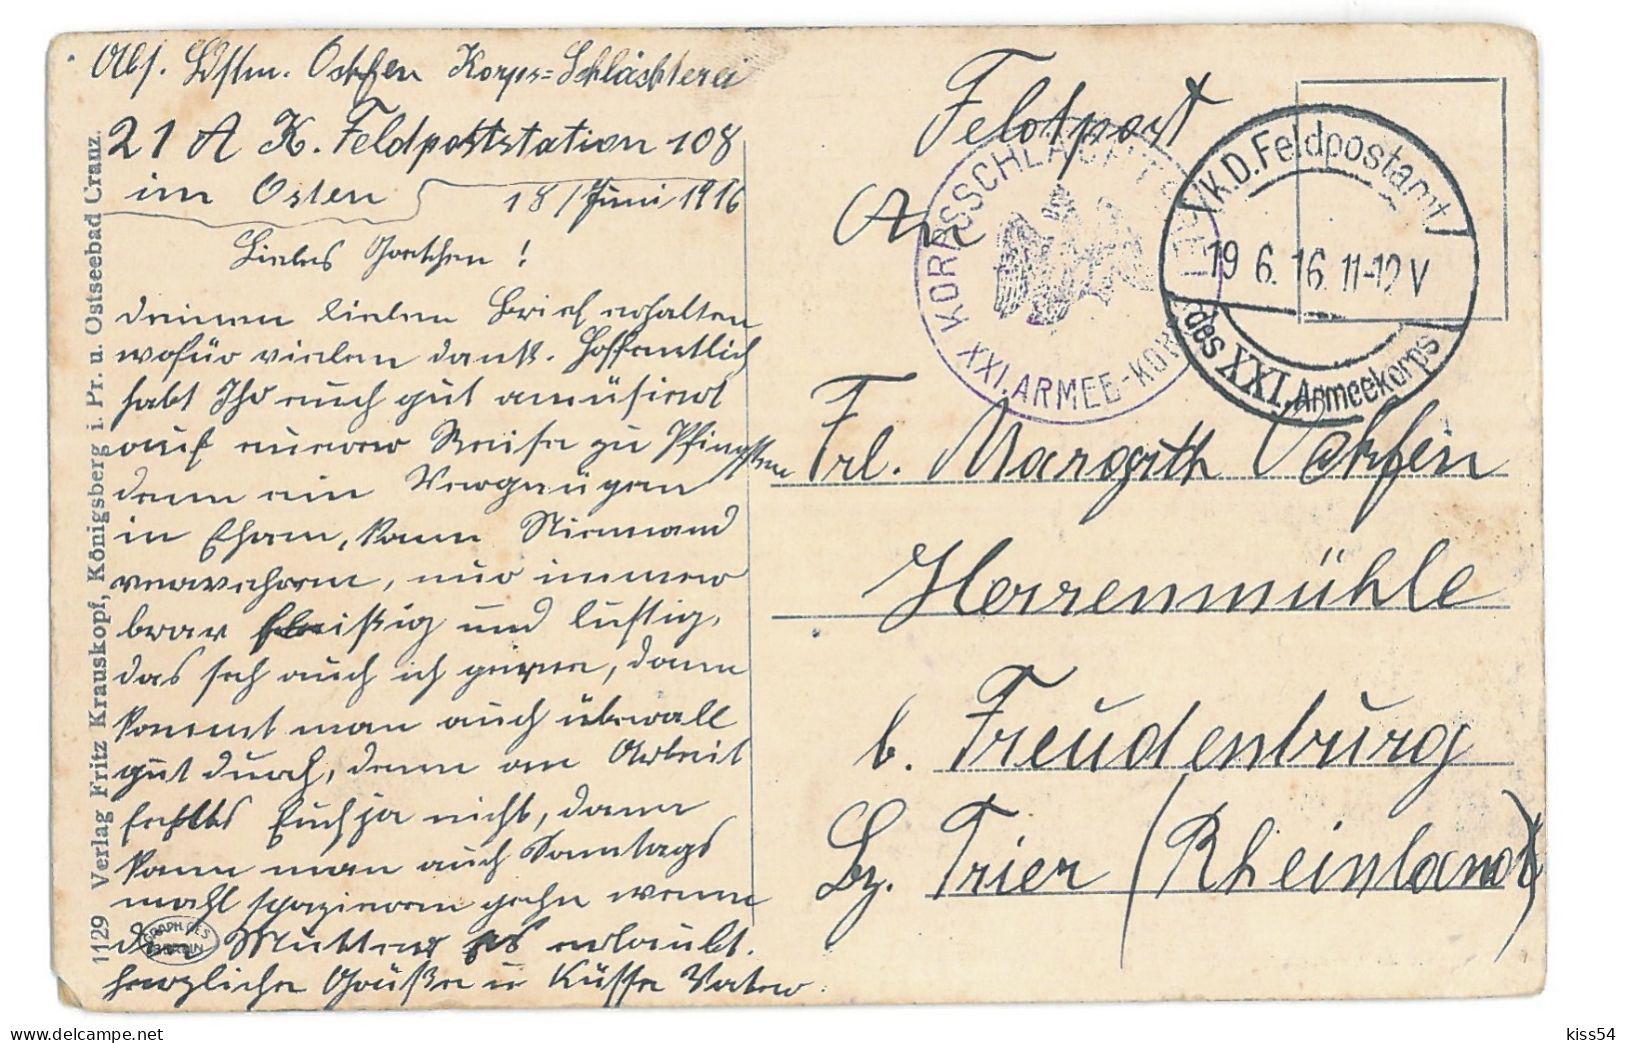 Abs. Ldstm. Ockfen Korps=Schlächterei
21 A K. Feldpoststation 108
im Osten 18/Juni 1916
Liebes Gretchen!
deinen lieben Brief erhalten
wofür vielen dank. Hoffentlich
habt Ihr euch gut amüsiert
auf eurer Reise zu Pfingsten
denn ein Vergnügen
in Eham, kann Niemand
verwehren, nur immer
brav fleißig und lustig,
das seh auch ich gerne, dann
kommt man auch überall
gut durch, denn an Arbeit
fehlts Euch ja nicht, dann
kann man auch Sonntags
mahl spazieren gehn wenn
die Mutter es erlaubt.
herzliche Grüße u Küsse Vater.
Feldpost
An
Frl. Margreth Ockfen
Herrenmühle
b. Freudenburg
Bz. Trier (Rheinland)
KORPSSCHLACHTEREI
XXI. ARMEE-KORPS
K.D. Feldpostamt
19 6. 16. 11-12 V
des XXI. Armeekorps
1129 Verlag Fritz Krauskopf, Königsberg i. Pr. u. Ostseebad Cranz.
GRAPH. GES.
BERLIN
kiss54